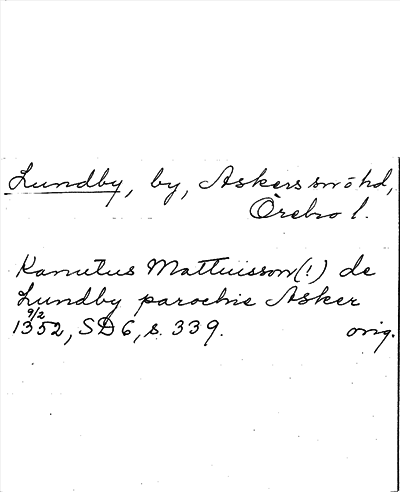 Lundby, by, Askers sn o hd,
Örebro l.
Kanutus Mattuisson(!) de
Lundby parochie Asker
9/2
1352, SD 6, s. 339. orig.